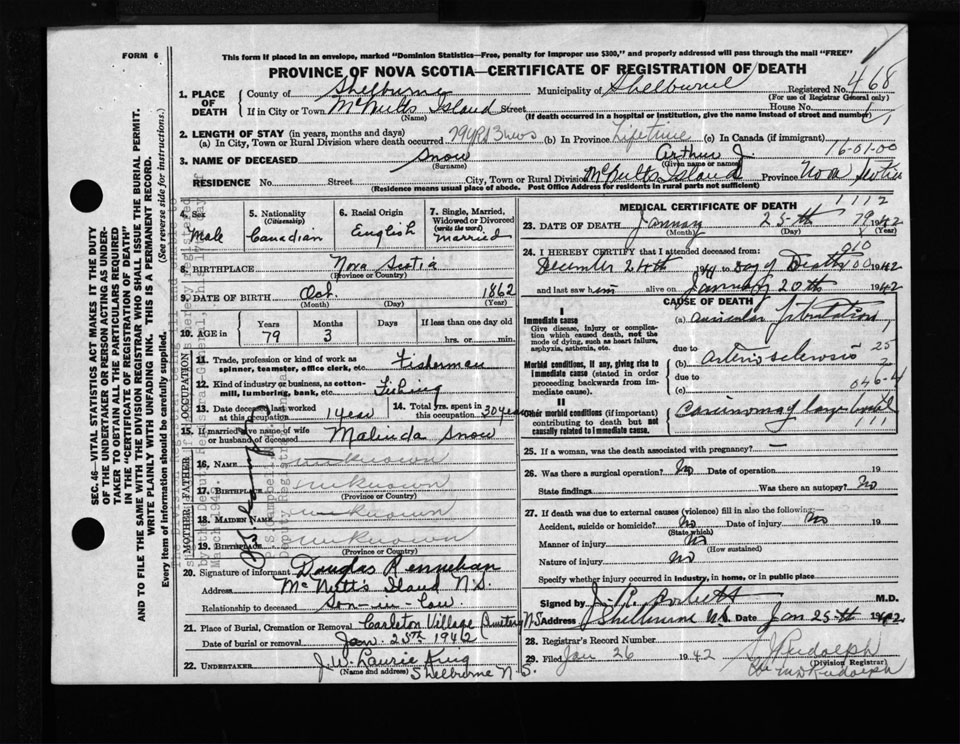 FORM 6
This form if placed in an envelope, marked "Dominion Statistics—Free, penalty for improper use $300," and properly addressed will pass through the mail "FREE"
PROVINCE OF NOVA SCOTIA—CERTIFICATE OF REGISTRATION OF DEATH
1. PLACE OF DEATH County of Shelburne Municipality of Shelburne Registered No. 468
(For use of Registrar General only)
If in City or Town McNutts Island Street House No.
(Name) (If death occurred in a hospital or institution, give the name instead of street and number)
2. LENGTH OF STAY (in years, months and days)
(a) In City, Town or Rural Division where death occurred 79 yrs 3 mos (b) In Province Lifetime (c) In Canada (if immigrant)
16-01-00
3. NAME OF DECEASED Snow Arthur J.
(Surname) (Given name or names)
RESIDENCE No. Street City, Town or Rural Division McNutts Island Province Nova Scotia
(Residence means usual place of abode. Post Office Address for residents in rural parts not sufficient)
4. Sex Male
5. Nationality (Citizenship) Canadian
6. Racial Origin English
7. Single, Married, Widowed or Divorced (write the word) Married
8. BIRTHPLACE Nova Scotia
(Province or Country)
9. DATE OF BIRTH Oct. 1862
(Month) (Day) (Year)
10. AGE in Years Months Days If less than one day old
79 3 hrs. or min.
OCCUPATION
11. Trade, profession or kind of work as spinner, teamster, office clerk, etc. Fisherman
12. Kind of industry or business, as cotton-mill, lumbering, bank, etc. Fishing
13. Date deceased last worked at this occupation 1 year 14. Total yrs. spent in this occupation 30 years
15. If married give name of wife or husband of deceased Malinda Snow
FATHER
16. Name unknown
17. Birthplace unknown
(Province or Country)
MOTHER
18. Maiden Name unknown
19. Birthplace unknown
(Province or Country)
20. Signature of informant Douglas Rennehan
Address McNutt's Island N.S.
Relationship to deceased Son-in-law
21. Place of Burial, Cremation or Removal Carleton Village Cemetery N.S.
Date of burial or removal Jan. 25th 1942
22. UNDERTAKER J. W. Laurie King
(Name and address) Shelburne N.S.
MEDICAL CERTIFICATE OF DEATH
1112
23. DATE OF DEATH January 25th 1942
79
(Month) (Day) (Year)
24. I HEREBY CERTIFY that I attended deceased from:
December 24th 1941 to Day of Death 1942
and last saw him alive on January 20th 1942
CAUSE OF DEATH
I
Immediate cause
Give disease, injury or complication which caused death, not the mode of dying, such as heart failure, asphyxia, asthenia, etc.
(a) auricular fibrillation
due to
Morbid conditions, if any, giving rise to immediate cause (stated in order proceeding backwards from immediate cause).
(b) arterio sclerosis 25
due to
(c) 046-4
II
Other morbid conditions (if important) contributing to death but not causally related to immediate cause.
Carcinoma of
25. If a woman, was the death associated with pregnancy? —
26. Was there a surgical operation? No Date of operation 19
State findings Was there an autopsy? No
27. If death was due to external causes (violence) fill in also the following:—
Accident, suicide or homicide? No Date of injury No 19
(State which)
Manner of injury No
(How sustained)
Nature of injury No
Specify whether injury occurred in industry, in home, or in public place
Signed by M.D.
Address Shelburne N.S. Date Jan 25-th 1942
28. Registrar's Record Number
29. Filed Jan 26 1942 Rudolph
(Division Registrar)
SEC. 46—VITAL STATISTICS ACT MAKES IT THE DUTY OF THE UNDERTAKER OR PERSON ACTING AS UNDERTAKER TO OBTAIN ALL THE PARTICULARS REQUIRED IN THE "CERTIFICATE OF REGISTRATION OF DEATH"
AND TO FILE THE SAME WITH THE DIVISION REGISTRAR WHO SHALL ISSUE THE BURIAL PERMIT.
WRITE PLAINLY WITH UNFADING INK. THIS IS A PERMANENT RECORD.
Every item of information should be carefully supplied. (See reverse side for instructions.)